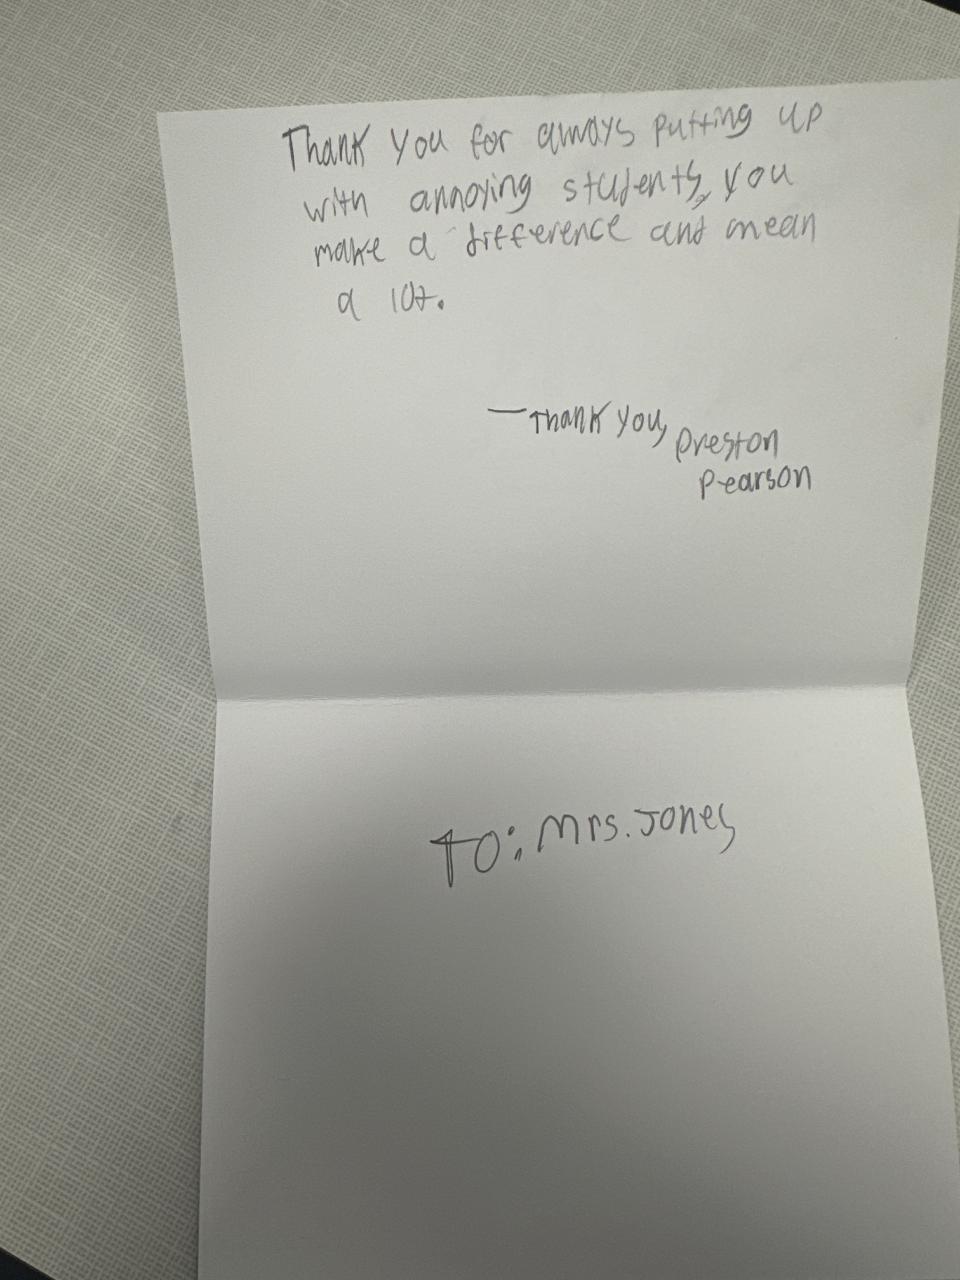 Thank you for always putting up
with annoying students, you
make a difference and mean
a lot.
—Thank you,
Preston
Pearson
To: Mrs. Jones